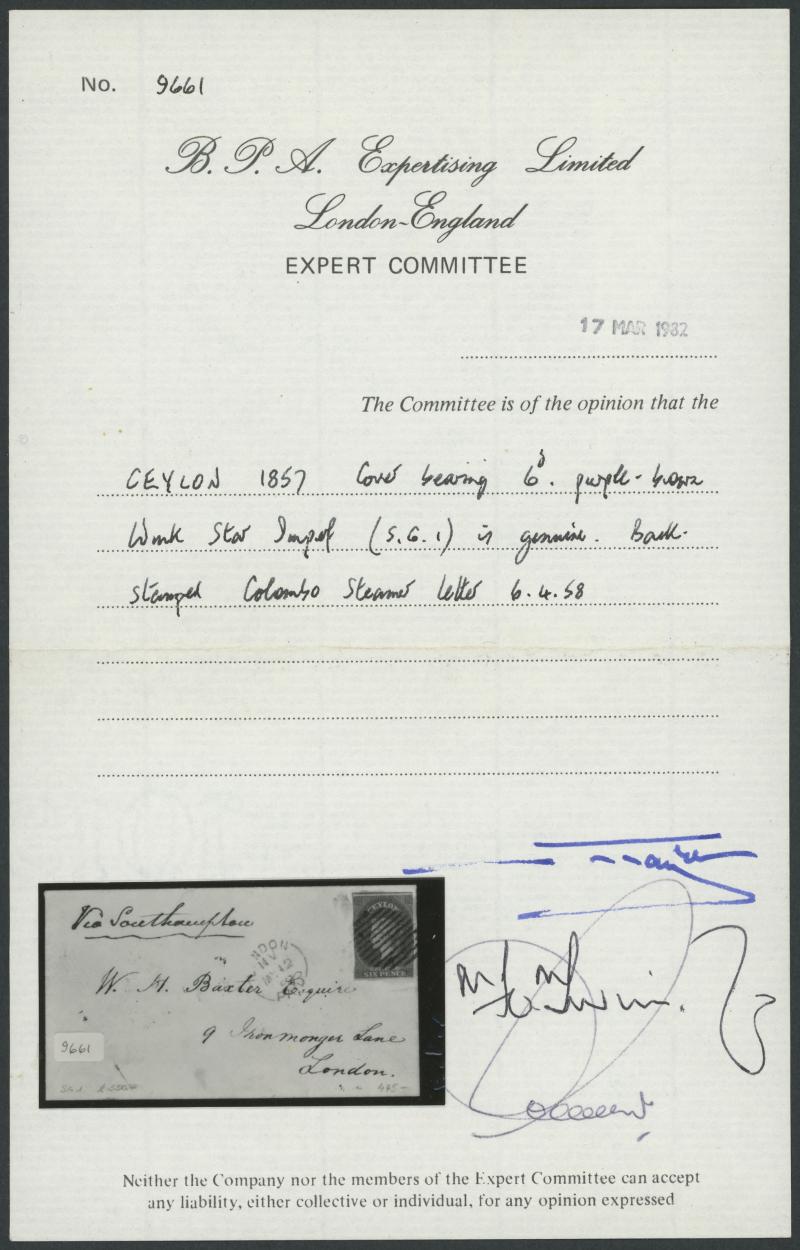 No. 9661
B. P. A. Expertising Limited
London-England
EXPERT COMMITTEE
17 MAR 1982
The Committee is of the opinion that the
CEYLON 1857 Cover bearing 6d. purple-brown
Wmk Star Imperf (S.G.1) is genuine. Back-
stamped Colombo Steamer letter 6.4.58
Via Southampton
CEYLON
SIX PENCE
W. H. Baxter Esquire
9 Ironmonger Lane
London.
9661
Neither the Company nor the members of the Expert Committee can accept
any liability, either collective or individual, for any opinion expressed